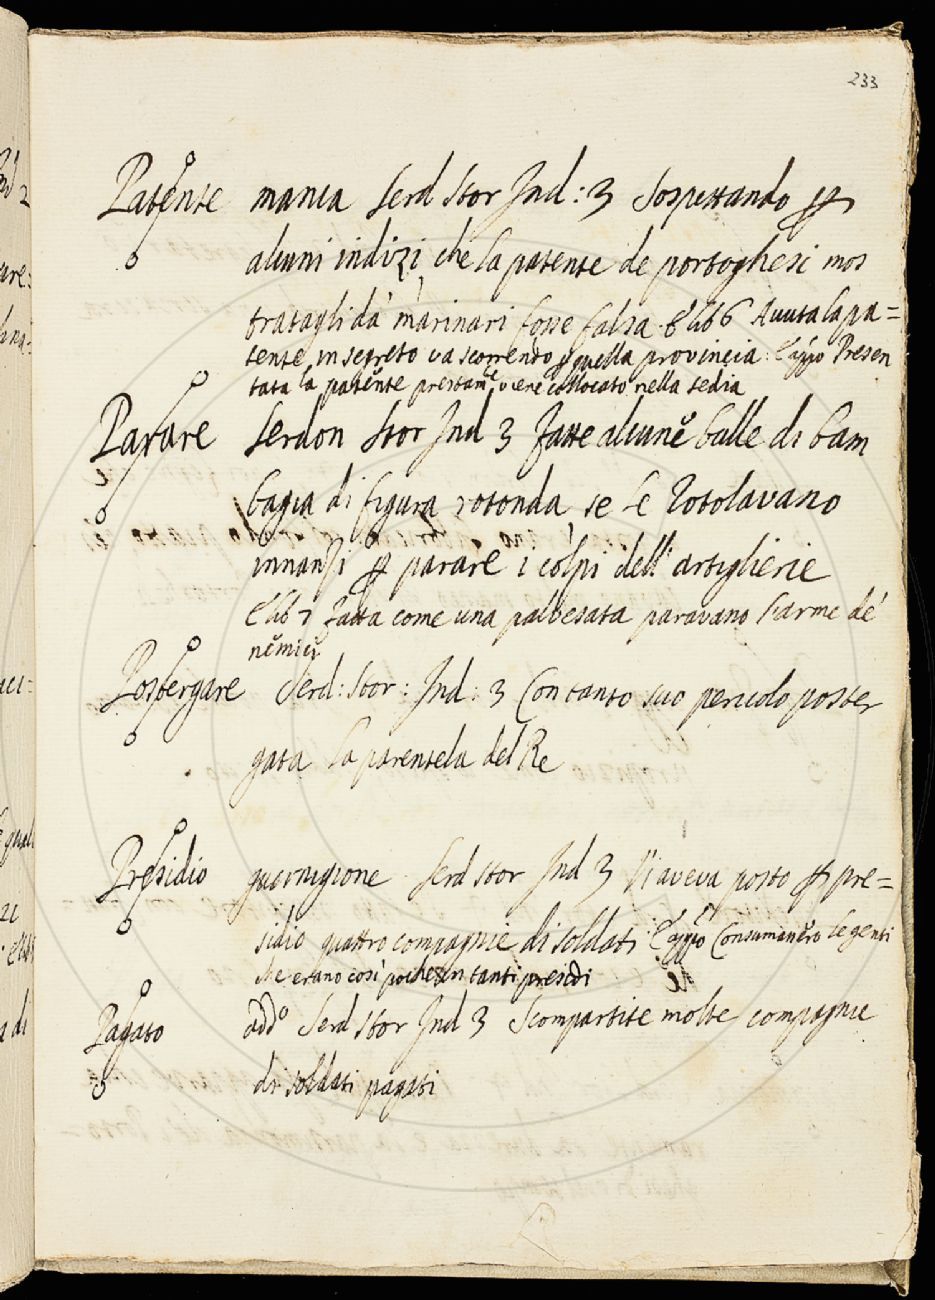 233
Patente manca Serd Stor Ind: 3 Sospettando p
alcuni indizi che la patente de portoghesi mos
tratagli dà marinari fosse falsa. E lib 6 Avuta la pa=
tente in segreto va scorrendo p quella provincia. E appo Presen
tata la patente prestamte viene collocato nella sedia
Parare Serdon Stor Ind 3 fatte alcune balle di bam
bagia di figura rotonda se le rotolavano
innanzi p parare i colpi dell'artiglierie
E lib 7 fatta come una palvesata paravano l'arme de'
nemici
Postergare Serd: Stor: Ind: 3 Con tanto suo pericolo poster
gata la parentela del Re
Presidio guernigione Serd Stor Ind 3 V'aveva posto p pre=
sidio quattro compagnie di soldati E appo Consumaněro le genti
che erano così poche in tanti presidi
Pagato add° Serd Stor Ind 3 Scompartite molte compagnie
di soldati pagati